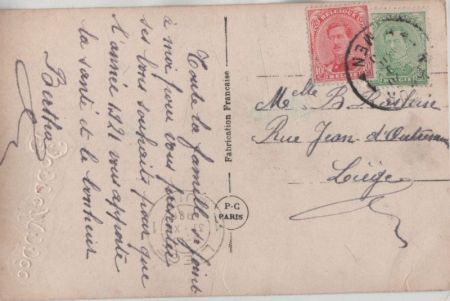 Toute la famille se joint
à moi pour vous présenter
ses bons souhaits pour que
l'année 1921 vous apporte
la santé et le bonheur
Berthe
Fabrication Française
P-C
PARIS
BELGIQUE
Melle B.
Rue Jean d'Outremeuse
Liège